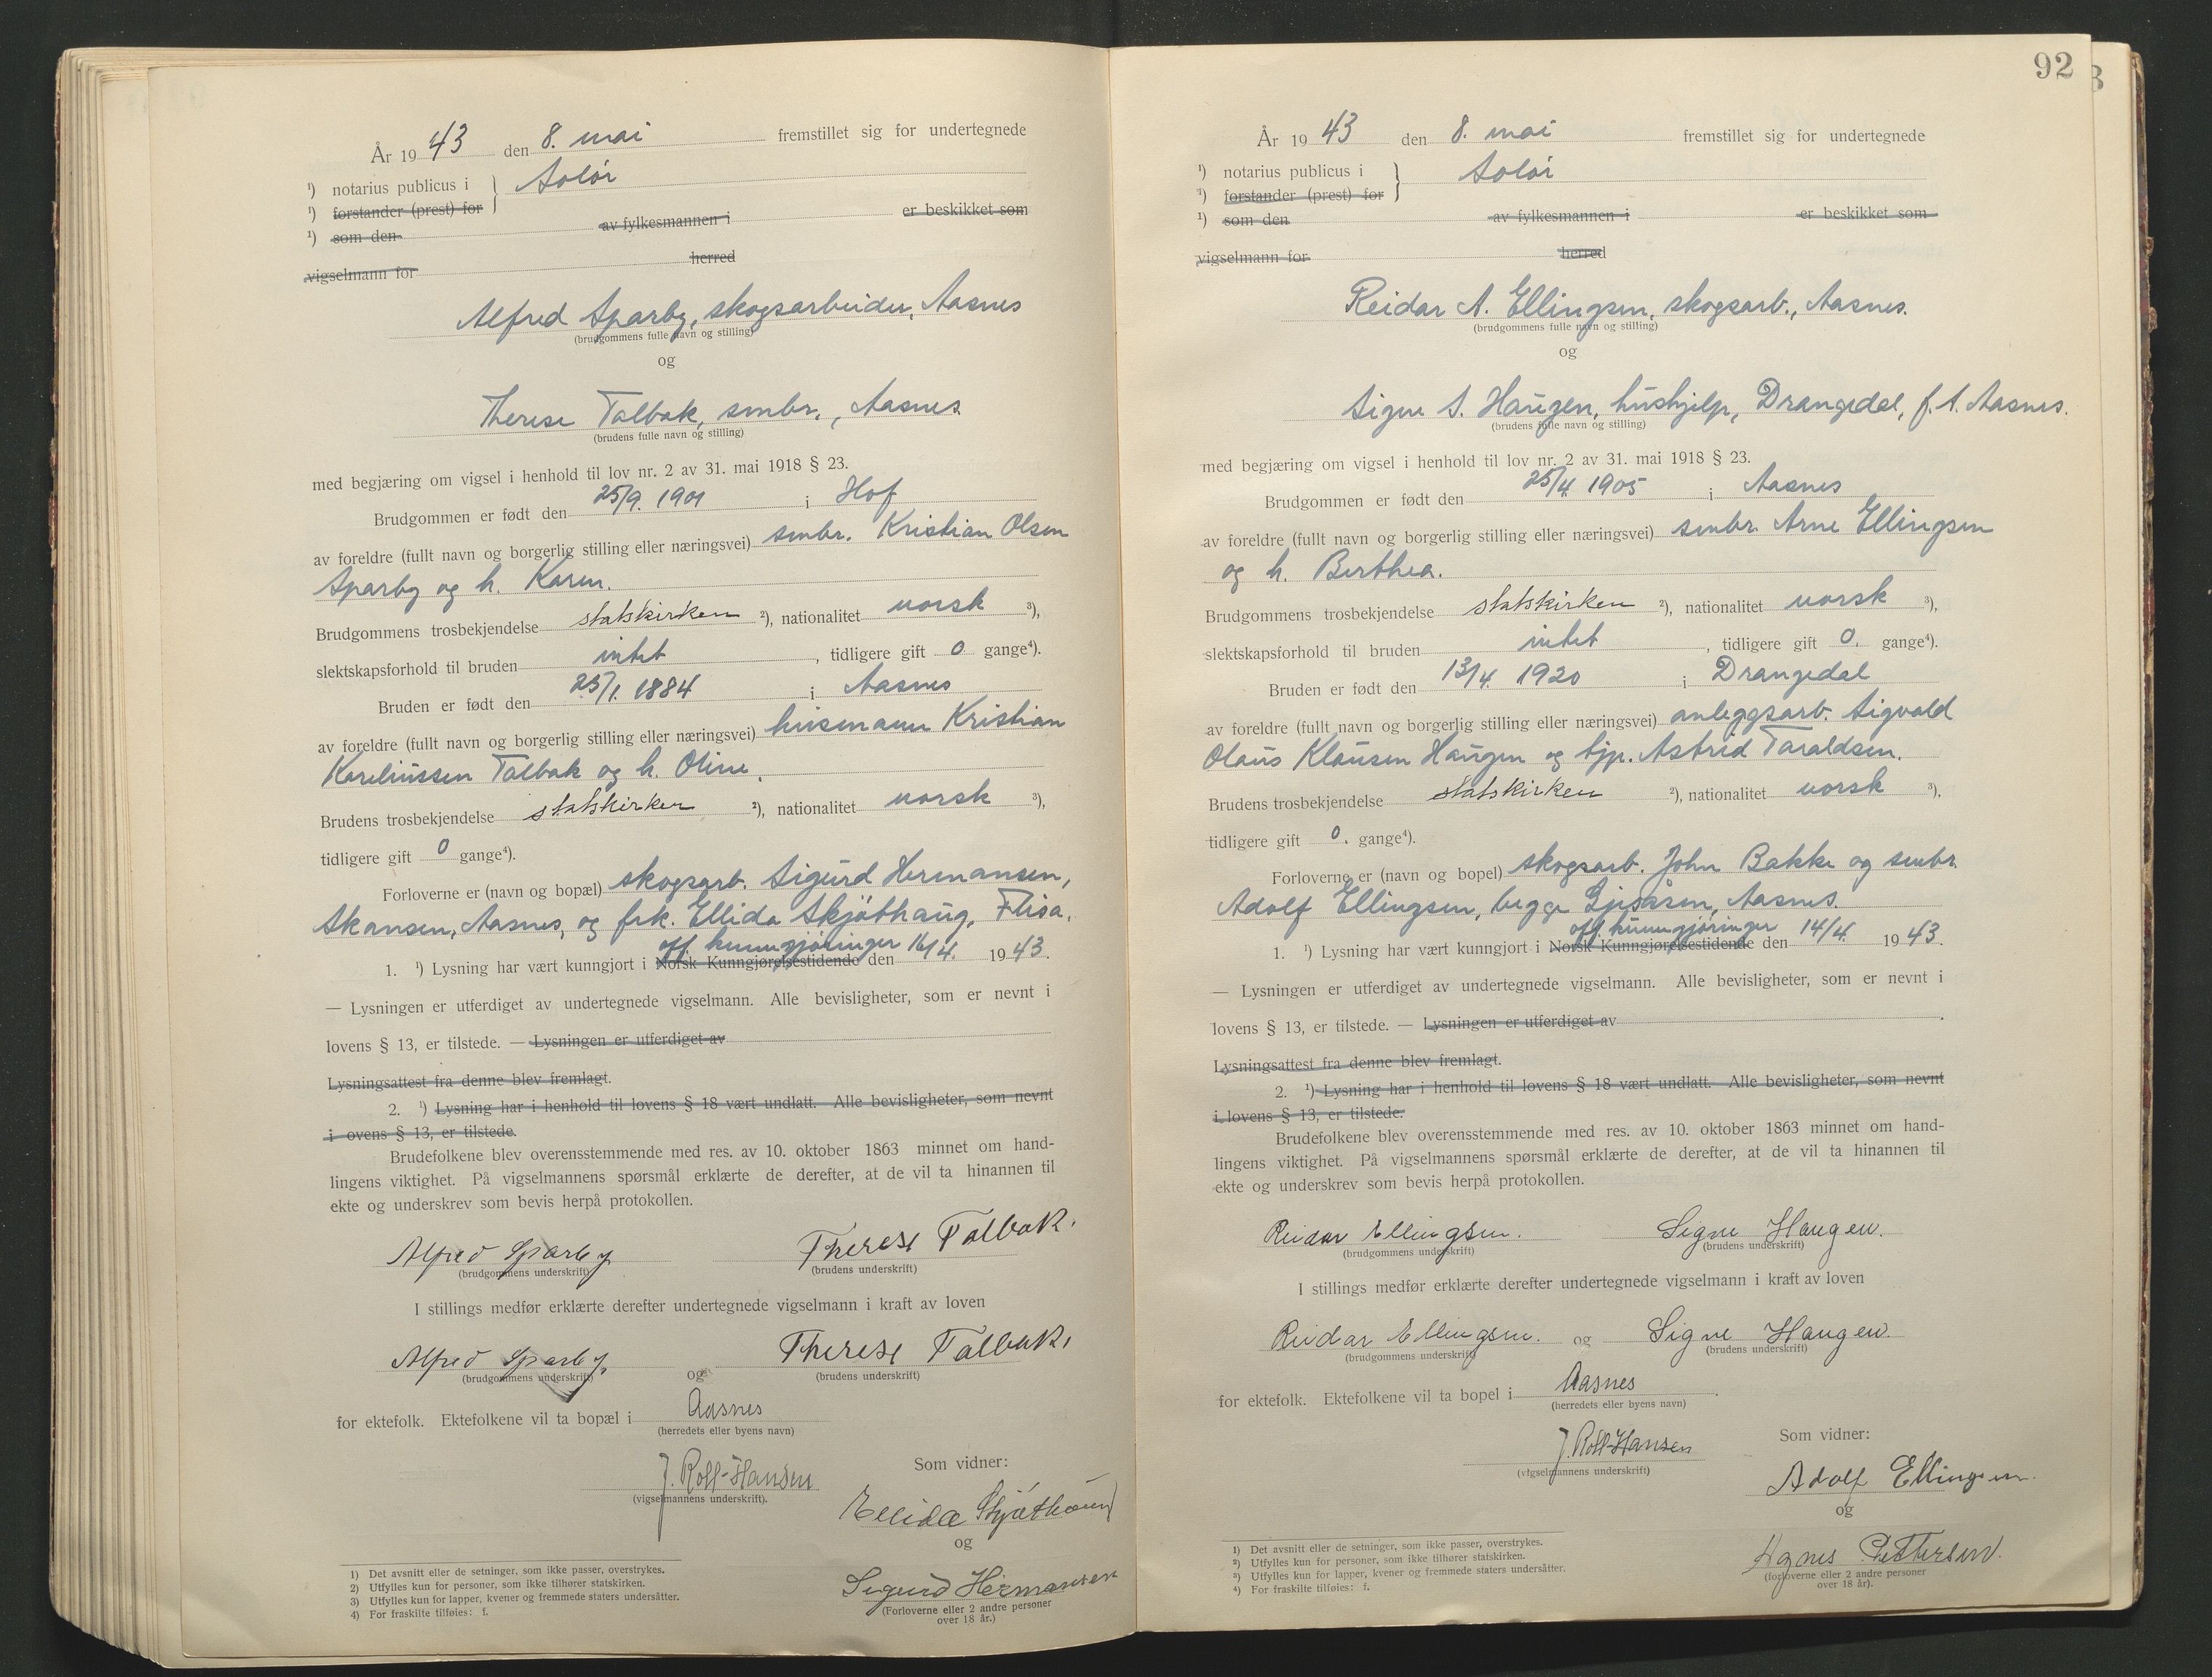 År 1943 den 8. mai fremstillet sig for undertegnede
¹) notarius publicus i } Solør
¹) forstander (prest) for
¹) som den av fylkesmannen i er beskikket som
vigselmann for herred
Alfred Sparby, skogsarbeider, Aasnes
(brudgommens fulle navn og stilling)
og
Therese Talbak, smbr., Aasnes
(brudens fulle navn og stilling)
med begjæring om vigsel i henhold til lov nr. 2 av 31. mai 1918 § 23.
Brudgommen er født den 25/9. 1901 i Hof
av foreldre (fullt navn og borgerlig stilling eller næringsvei) smbr. Kristian Olsen
Sparby og h. Karen.
Brudgommens trosbekjendelse statskirken ²), nationalitet norsk ³),
slektskapsforhold til bruden intet, tidligere gift 0 gange⁴).
Bruden er født den 25/1. 1884 i Aasnes
av foreldre (fullt navn og borgerlig stilling eller næringsvei) husmann Kristian
Karelinssen Talbak og h. Oline.
Brudens trosbekjendelse statskirken ²), nationalitet norsk ³),
tidligere gift 0 gange⁴).
Forloverne er (navn og bopæl) skogsarb. Sigurd Hermansen,
Skansen, Aasnes, og frk. Ellida Skjøthaug, Flisa.
off. kunngjøringer
1. ¹) Lysning har vært kunngjort i Norsk Kunngjørelsestidende den 16/4. 1943.
— Lysningen er utferdiget av undertegnede vigselmann. Alle bevisligheter, som er nevnt i
lovens § 13, er tilstede. — Lysningen er utferdiget av
Lysningsattest fra denne blev fremlagt.
2. ¹) Lysning har i henhold til lovens § 18 vært undlatt. Alle bevisligheter, som nevnt
i ovens § 13, er tilstede.
Brudefolkene blev overensstemmende med res. av 10. oktober 1863 minnet om hand-
lingens viktighet. På vigselmannens spørsmål erklærte de derefter, at de vil ta hinannen til
ekte og underskrev som bevis herpå protokollen.
Alfred Sparby Therese Talbak.
(brudgommens underskrift) (brudens underskrift)
I stillings medfør erklærte derefter undertegnede vigselmann i kraft av loven
Alfred Sparby. og Therese Talbak.
(brudgommens underskrift) (brudens underskrift)
for ektefolk. Ektefolkene vil ta bopæl i Aasnes
(herredets eller byens navn)
J. Roll-Hansen
(vigselmannens underskrift).
Som vidner:
Ellida Skjøthaug
og
Sigurd Hermansen
(Forloverne eller 2 andre personer
over 18 år.)
1) Det avsnitt eller de setninger, som ikke passer, overstrykes.
2) Utfylles kun for personer, som ikke tilhører statskirken.
3) Utfylles kun for lapper, kvener og fremmede staters undersåtter.
4) For fraskilte tilføies: f.
92
År 1943 den 8. mai fremstillet sig for undertegnede
¹) notarius publicus i } Solør
¹) forstander (prest) for
¹) som den av fylkesmannen i er beskikket som
vigselmann for herred
Reidar A. Ellingsen, skogsarb., Aasnes.
(brudgommens fulle navn og stilling)
og
Signe S. Haugen, hushjelp, Drangedal, f. t. Aasnes.
(brudens fulle navn og stilling)
med begjæring om vigsel i henhold til lov nr. 2 av 31. mai 1918 § 23.
Brudgommen er født den 25/4 1905 i Aasnes
av foreldre (fullt navn og borgerlig stilling eller næringsvei) smbr. Arne Ellingsen
og h. Berthea.
Brudgommens trosbekjendelse statskirken ²), nationalitet norsk ³),
slektskapsforhold til bruden intet, tidligere gift 0. gange⁴).
Bruden er født den 13/4. 1920 i Drangedal
av foreldre (fullt navn og borgerlig stilling eller næringsvei) anleggsarb. Sigvald
Olaus Klausen Haugen og tjp. Astrid Taraldsen.
Brudens trosbekjendelse statskirken ²), nationalitet norsk ³),
tidligere gift 0. gange⁴).
Forloverne er (navn og bopel) skogsarb. John Bakke og smbr.
Adolf Ellingsen, begge Gjesåsen, Aasnes.
off. kunngjøringer
1. ¹) Lysning har vært kunngjort i Norsk Kunngjørelsestidende den 14/4. 1943.
— Lysningen er utferdiget av undertegnede vigselmann. Alle bevisligheter, som er nevnt i
lovens § 13, er tilstede. — Lysningen er utferdiget av
Lysningsattest fra denne blev fremlagt.
2. ¹) Lysning har i henhold til lovens § 18 vært undlatt. Alle bevisligheter, som nevnt
i lovens § 13, er tilstede.
Brudefolkene blev overensstemmende med res. av 10. oktober 1863 minnet om hand-
lingens viktighet. På vigselmannens spørsmål erklærte de derefter, at de vil ta hinannen til
ekte og underskrev som bevis herpå protokollen.
Reidar Ellingsen. Signe Haugen.
(brudgommens underskrift) (brudens underskrift)
I stillings medfør erklærte derefter undertegnede vigselmann i kraft av loven
Reidar Ellingsen. og Signe Haugen.
(brudgommens underskrift) (brudens underskrift)
for ektefolk. Ektefolkene vil ta bopel i Aasnes
(herredets eller byens navn)
J. Roll-Hansen
(vigselmannens underskrift)
Som vidner:
Adolf Ellingsen.
og
Agnes Pettersen.
(forloverne eller 2 andre personer
over 18 år).
1) Det avsnitt eller de setninger, som ikke passer, overstrykes.
²) Utfylles kun for personer, som ikke tilhører statskirken.
³) Utfylles kun for lapper, kvener og fremmede staters undersåtter.
⁴) For fraskilte tilføies: f.